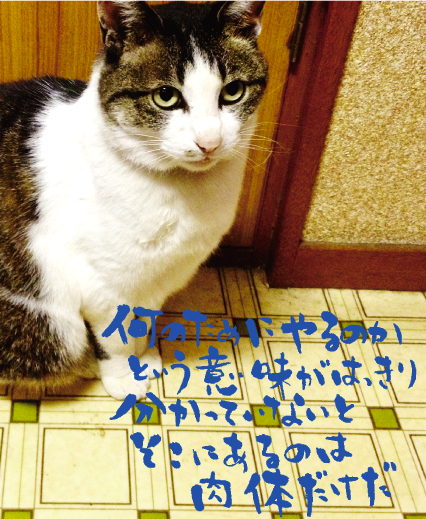 何のためにやるのか
という意味がはっきり
分かっていないと
そこにあるのは
肉体だけだ